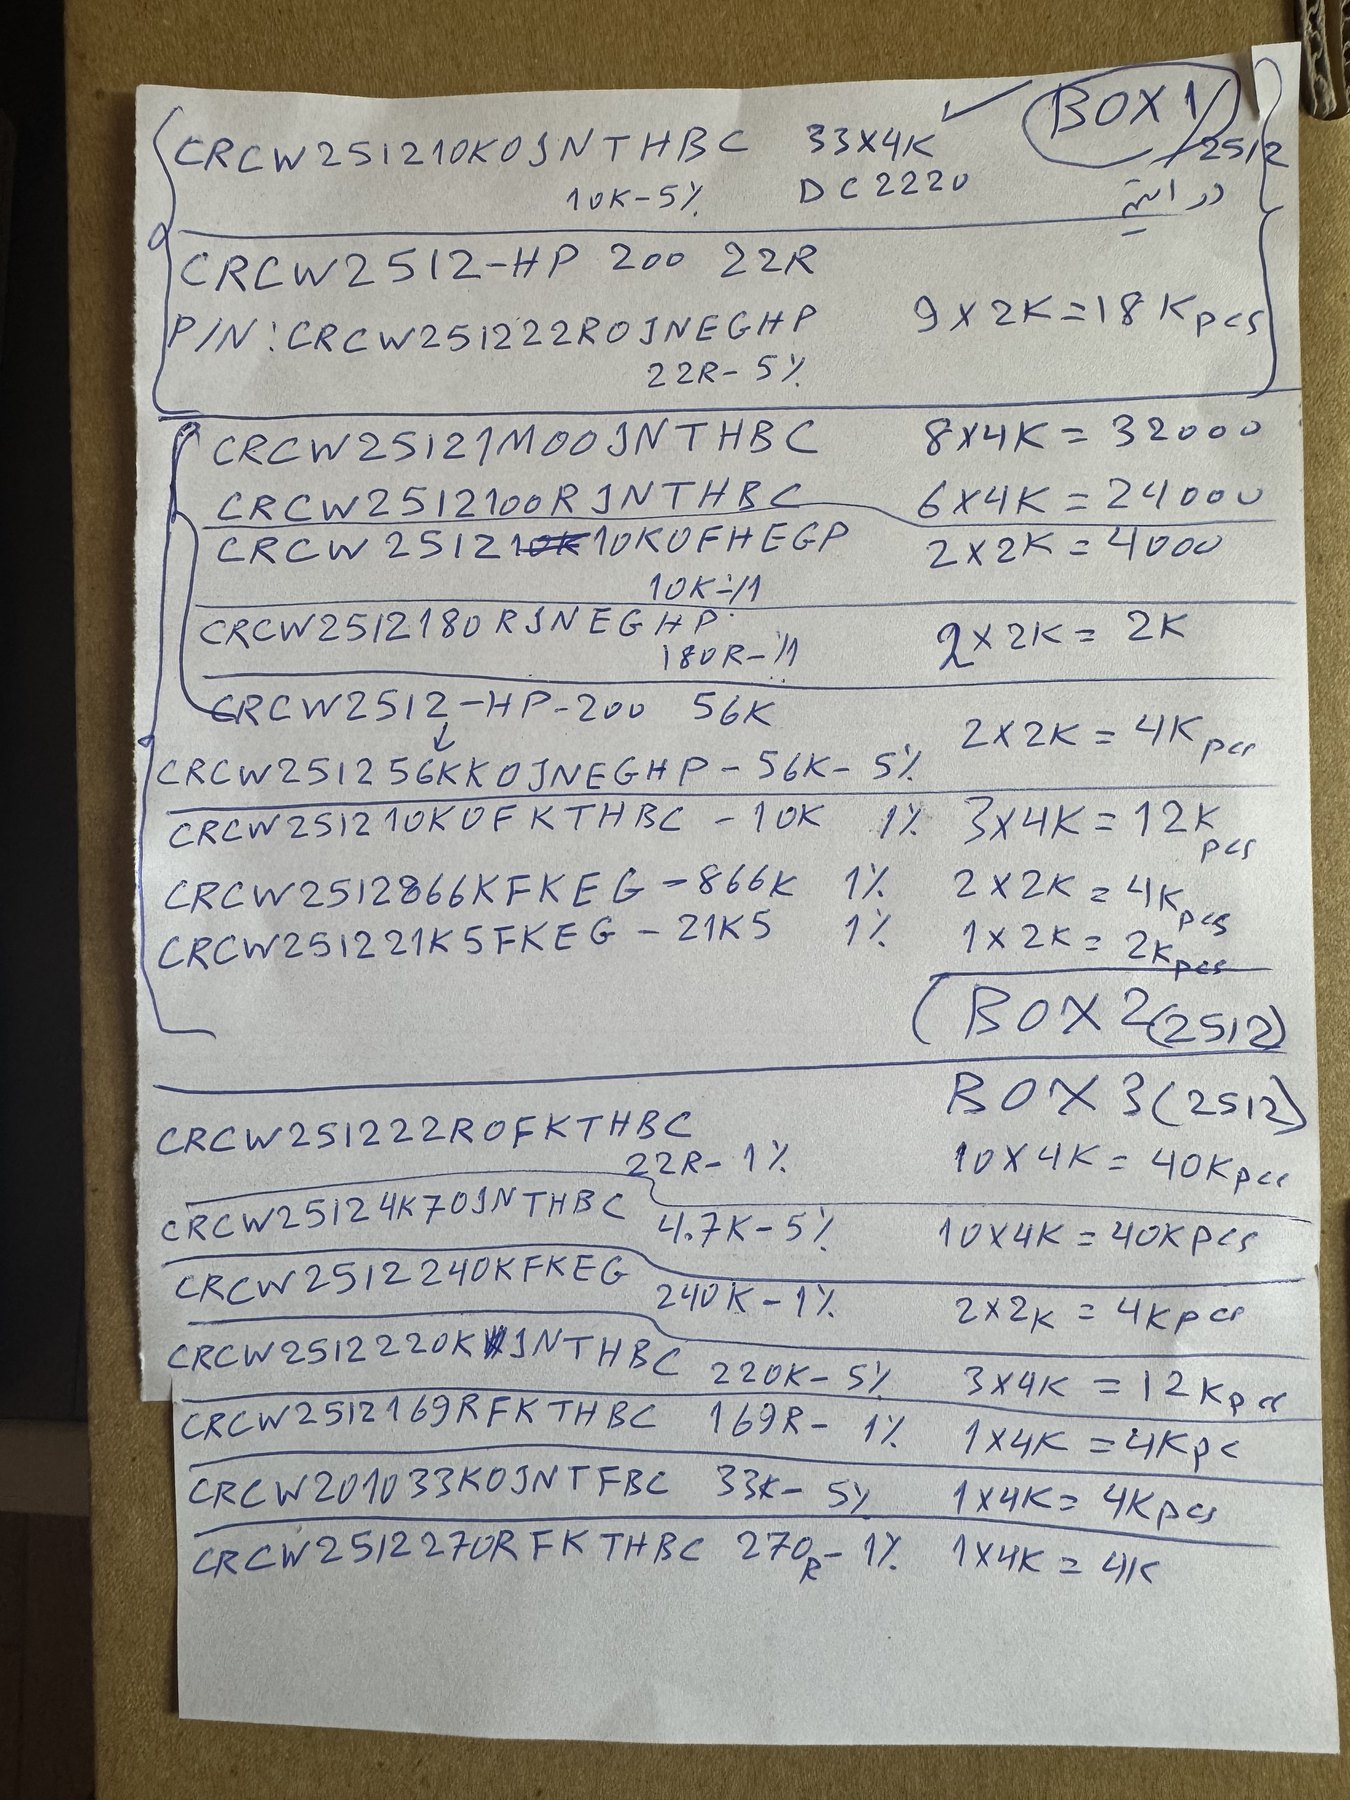 BOX 1/2512
CRCW251210K0JNTHBC 33X4K ✓
10K-5% DC2220 در انتها
CRCW2512-HP 200 22R
P/N: CRCW251222R0JNEGHP 9X2K=18Kpcs
22R-5%
CRCW25121M00JNTHBC 8X4K=32000
CRCW2512100RJNTHBC 6X4K=24000
CRCW2512 10K 10K0FHEGP 2X2K=4000
10K-%1
CRCW2512180RJNEGHP 2X2K=2K
180R-%1
CRCW2512-HP-200 56K 2X2K=4Kpcs
CRCW251256KK0JNEGHP-56K-5%
CRCW251210K0FKTHBC-10K 1% 3X4K=12Kpcs
CRCW2512866KFKEG-866K 1% 2X2K=4Kpcs
CRCW251221K5FKEG-21K5 1% 1X2K=2Kpcs
BOX 2(2512)
BOX 3(2512)
CRCW251222R0FKTHBC
22R-1% 10X4K=40Kpcs
CRCW25124K70JNTHBC 4.7K-5% 10X4K=40Kpcs
CRCW2512240KFKEG 240K-1% 2X2K=4Kpcs
CRCW2512220KJNTHBC 220K-5% 3X4K=12Kpcs
CRCW2512169RFKTHBC 169R-1% 1X4K=4Kpc
CRCW201033K0JNTFBC 33K-5% 1X4K=4Kpcs
CRCW2512270RFKTHBC 270R-1% 1X4K=4K